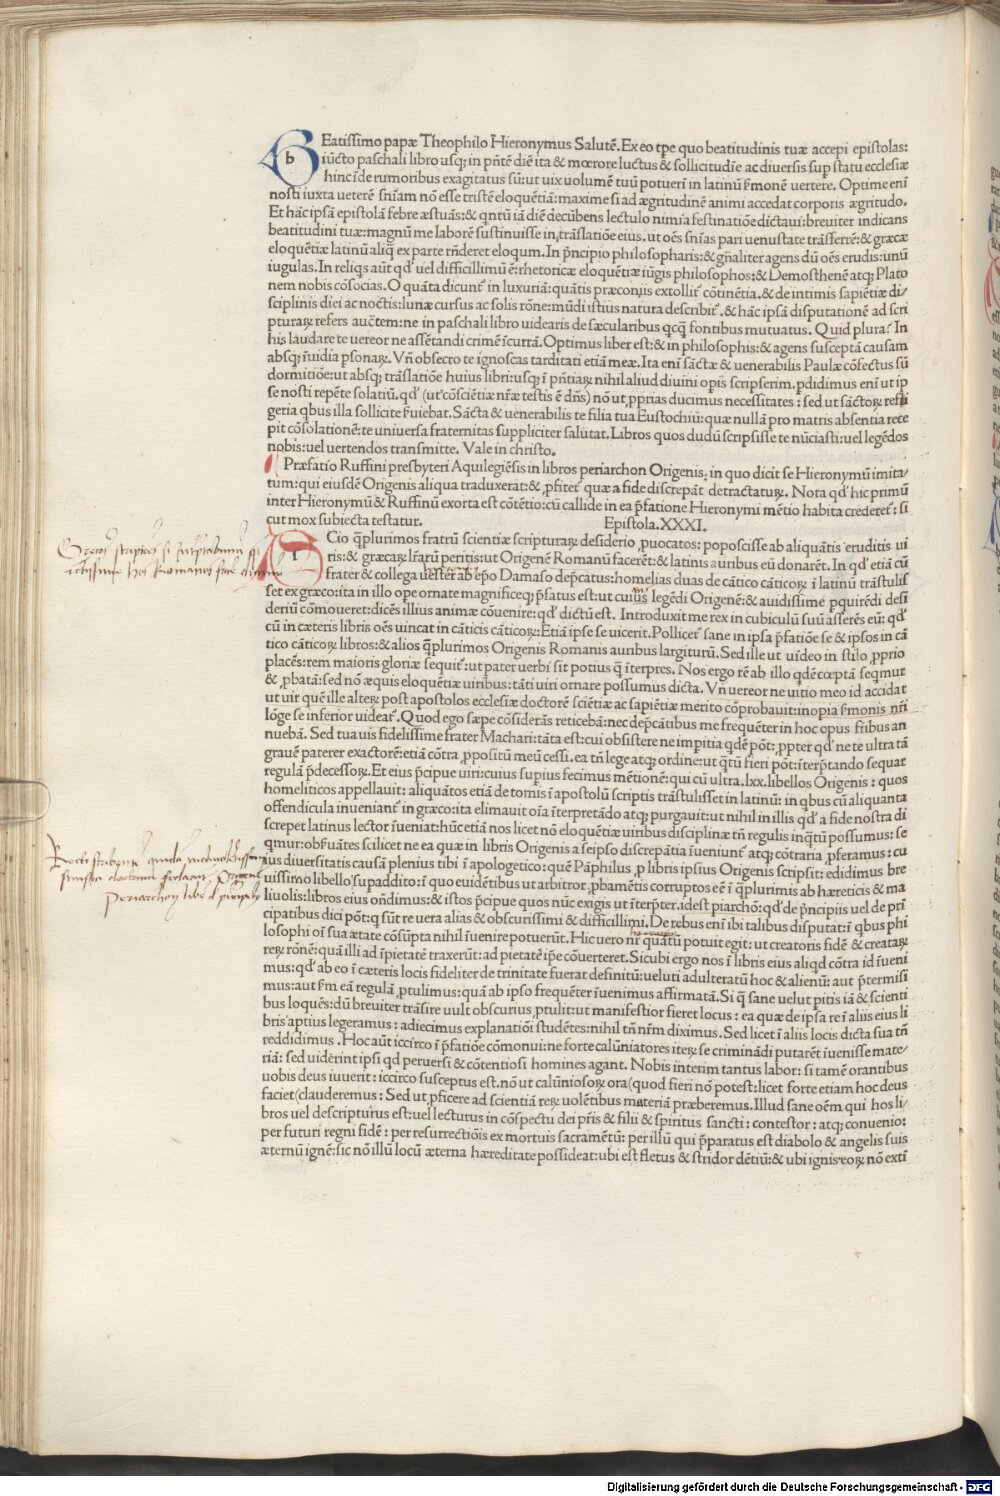 BEatissimo papæ Theophilo Hieronymus Salutē. Ex eo tpe quo beatitudinis tuæ accepi epistolas:
iūcto paschali libro usq; in p̄ñtē diē ita & mœrore luctus & sollicitudīe ac diuersis sup statu ecclesiæ
hinc īde rumoribus exagitatus sū: ut uix uolumē tuū potuerī in latinū s̄monē uertere. Optime enī
nosti iuxta ueterē sn̄iam nō esse tristē eloquētiā: maxime si ad ægritudinē animi accedat corporis ægritudo.
Et hāc ipsā epistolā febre æstuās: & qntū iā diē decūbens lectulo nimia festinatiōe dictaui: breuiter indicans
beatitudini tuæ: magnū me laborē sustinuisse in trāslatiōe eius. ut oēs sn̄ias pari uenustate trāsferrē: & græcæ
eloquētiæ latinū aliq̄ ex parte rn̄deret eloqum. In p̄ncipio philosopharis: & gn̄aliter agens dū oēs erudis: unū
iugulas. In reliqs aūt qd' uel difficillimū ē: rhetoricæ eloquētiæ iūgis philosophos: & Demosthenē atq; Plato
nem nobis cōsocias. O quāta dicunt' in luxuriā: quātis præconiis extollit' cōtinētia. & de intimis sapiētiæ di/
sciplinis diei ac noctis: lunæ cursus ac solis rōne: mūdi istius natura describit'. & hāc ipsā disputationē ad scri
pturaꝝ refers auctem: ne in paschali libro uidearis de sæcularibus qcq̄ fontibus mutuatus. Quid plura? In
his laudare te uereor ne assētandi crimē īcurrā. Optimus liber est: & in philosophis: & agens susceptā causam
absq; īuidia psonaꝝ. Vn̄ obsecro te ignoscas tarditati etiā meæ. Ita enī sāctæ & uenerabilis Paulæ cōfectus sū
dormitiōe: ut absq; trāslatiōe huius libri: usq; ī p̄ntiaꝝ nihil aliud diuini opis scripserim. pdidimus enī ut ip
se nosti repēte solatiū. qd' (ut' cōsciētiæ nr̄æ testis ē dn̄s) nō ut ꝓprias ducimus necessitates: sed ut sāctoꝝ refri
geria qbus illa sollicite s̄uiebat. Sācta & uenerabilis te filia tua Eustochiū: quæ nullā pro matris absentia rece
pit cōsolationē: te uniuersa fraternitas suppliciter salutat. Libros quos dudū scripsisse te nūciasti: uel legēdos
nobis: uel uertendos transmitte. Vale in christo.
Præfatio Ruffini presbyteri Aquilegiēsis in libros periarchon Origenis: in quo dicit se Hieronymū imita/
tum: qui eiusdē Origenis aliqua traduxerat: & ꝓfitet' quæ a fide discrepāt detractaturꝝ. Nota qd' hic primū
inter Hieronymū & Ruffinū exorta est cōtētio: cū callide in ea p̄fatione Hieronymi mētio habita crederet': si
cut mox subiecta testatur. Epistola.XXXI.
SCio q̄plurimos fratrū scientiæ scripturaꝝ desiderio ꝓuocatos: poposcisse ab aliquātis eruditis ui
ris: & græcaꝝ lr̄arū peritis: ut Origenē Romanū facerēt: & latinis auribus eū donarēt. In qd' etiā cū
frater & collega uester ab ep̄o Damaso dep̄catus: homelias duas de cātico cāticoꝝ ī latinū trāstulis
set ex græco: ita in illo ope ornate magnificeq; p̄fatus est: ut cuius legēdi Origenē: & auidissime pquirēdi desi
deriū cōmoueret: dicēs illius animæ cōuenire: qd' dictū est. Introduxit me rex in cubiculū suū asserēs eū: qd'
cū in cæteris libris oēs uincat in cāticis cāticoꝝ: Etiā ipse se uicerit. Pollicet' sane in ipsa p̄fatiōe se & ipsos in cā
tico cāticoꝝ libros: & alios q̄plurimos Origenis Romanis auribus largiturū. Sed ille ut uideo in stilo ꝓprio
placēs: rem maioris gloriæ sequit': ut pater uerbi sit potius q̄ īterpres. Nos ergo rē ab illo qdē cœptā seqmur
& ꝓbatā: sed nō æquis eloquētiæ uiribus: tāti uiri ornare possumus dicta. Vn̄ uereor ne uitio meo id accidat
ut uir quē ille alteꝝ post apostolos ecclesiæ doctorē sciētiæ ac sapiētiæ merito cōprobauit: inopia s̄monis nr̄i
lōge se inferior uideat'. Quod ego sæpe cōsiderās reticebā: nec dep̄catibus me frequēter in hoc opus fr̄ibus an
nuebā. Sed tua uis fidelissime frater Machari: tāta est: cui obsistere ne impitia qdē pōt: ꝓpter qd' ne te ultra tā
grauē paterer exactorē: etiā cōtra ꝓpositū meū cessi. ea tn̄ lege atq; ordine: ut q̄tū fieri pōt: īterp̄tando sequar
regulā p̄decessoꝝ. Et eius p̄cipue uiri: cuius supius fecimus mētionē: qui cū ultra .lxx. libellos Origenis: quos
homeliticos appellauit: aliquātos etiā de tomis ī apostolū scriptis trāstulisset in latinū: in qbus cū aliquanta
offendicula inueniant' in græco: ita elimauit oīa īterpretādo atq; purgauit: ut nihil in illis qd' a fide nostra di
screpet latinus lector īueniat: hūc etiā nos licet nō eloquētiæ uiribus disciplinæ tn̄ regulis inq̄tū possumus: se
qmur: obs̄uātes scilicet ne ea quæ in libris Origenis a seipso discrepātia īueniunt' atq; cōtraria ꝓferamus: cu
ius diuersitatis causā plenius tibi ī apologetico: quē Pāphilus ꝓ libris ipsius Origenis scripsit: edidimus bre
uissimo libello supaddito: ī quo euidētibus ut arbitror ꝓbamētis corruptos eē ī q̄plurimis ab hæreticis & ma
liuolis: libros eius on̄dimus: & istos p̄cipue quos nūc exigis ut īterp̄ter. idest piarchō: qd' de p̄ncipiis uel de prī
cipatibus dici pōt: q sūt re uera alias & obscurissimi & difficillimi. De rebus enī ibi talibus disputat: ī qbus phi
losophi oī sua ætate cōsūpta nihil īuenire potuerūt. Hic uero nr̄ quātū potuit egit: ut creatoris fidē & creataꝝ
reꝝ rōnē: quā illi ad īpietatē traxerūt: ad pietatē ip̄e cōuerteret. Sicubi ergo nos ī libris eius aliqd cōtra id īueni
mus: qd' ab eo ī cæteris locis fideliter de trinitate fuerat definitū: ueluti adulteratū hoc & alienū: aut p̄termisi
mus: aut s̄m eā regulā ꝓtulimus: quā ab ipso frequēter īuenimus affirmatā. Si q̄ sane uelut pitis iā & scienti
bus loquēs: dū breuiter trāsire uult obscurius ꝓtulit: ut manifestior fieret locus: ea quæ de ipsa re ī aliis eius li
bris aptius legeramus: adiecimus explanatiōi studētes: nihil tn̄ nr̄m diximus. Sed licet ī aliis locis dicta sua tn̄
reddidimus. Hoc aūt iccirco ī p̄fatiōe cōmonui: ne forte calūniatores iteꝝ se criminādi putarēt īuenisse mate/
riā: sed uiderint ipsi qd peruersi & cōtentiosi homines agant. Nobis interim tantus labor: si tamē orantibus
uobis deus iuuerit: iccirco susceptus est. nō ut calūniosoꝝ ora (quod fieri nō potest: licet forte etiam hoc deus
faciet) clauderemus: Sed ut ꝓficere ad scientiā reꝝ uolētibus materiā præberemus. Illud sane oēm qui hos li/
bros uel descripturus est: uel lecturus in cōspectu dei pr̄is & filii & spiritus sancti: contestor: atq; conuenio:
per futuri regni fidē: per resurrectiōis ex mortuis sacramētū: per illū qui p̄paratus est diabolo & angelis suis
æternū ignē: sic nō illū locū æterna hæreditate possideat: ubi est fletus & stridor dētiū: & ubi ignis eoꝝ nō extī
Digitalisierung gefördert durch die Deutsche Forschungsgemeinschaft - DFG